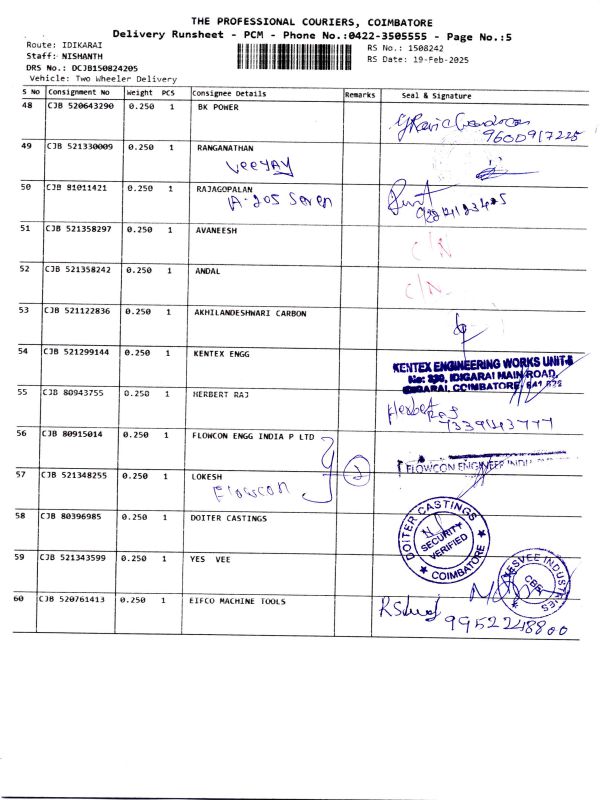 THE PROFESSIONAL COURIERS, COIMBATORE
Delivery Runsheet - PCM - Phone No.:0422-3505555 - Page No.:5
Route: IDIKARAI
RS No.: 1508242
Staff: NISHANTH
RS Date: 19-Feb-2025
DRS No.: DCJB150824205
Vehicle: Two Wheeler Delivery
S No Consignment No Weight PCS Consignee Details Remarks Seal & Signature
48 CJB 520643290 0.250 1 BK POWER
9600917225
49 CJB 521330009 0.250 1 RANGANATHAN
VeeJAY
50 CJB 81011421 0.250 1 RAJAGOPALAN
A-205 Seven
51 CJB 521358297 0.250 1 AVANEESH
C/N
52 CJB 521358242 0.250 1 ANDAL
C/N.
53 CJB 521122836 0.250 1 AKHILANDESHWARI CARBON
54 CJB 521299144 0.250 1 KENTEX ENGG
KENTEX ENGINEERING WORKS UNIT-
IDIGARAI MAIN ROAD,
IDIGARAI, COIMBATORE
55 CJB 80943755 0.250 1 HERBERT RAJ
Herbert
RAJ
56 CJB 80915014 0.250 1 FLOWCON ENGG INDIA P LTD
2
FLOWCON ENGINEER INDIA
57 CJB 521348255 0.250 1 LOKESH
Flowcon
58 CJB 80396985 0.250 1 DOITER CASTINGS
DOITER CASTINGS
SECURITY
VERIFIED
COIMBATORE
59 CJB 521343599 0.250 1 YES VEE
YESVEE INDUSTRIES
CBE
60 CJB 520761413 0.250 1 EIFCO MACHINE TOOLS
9952248800